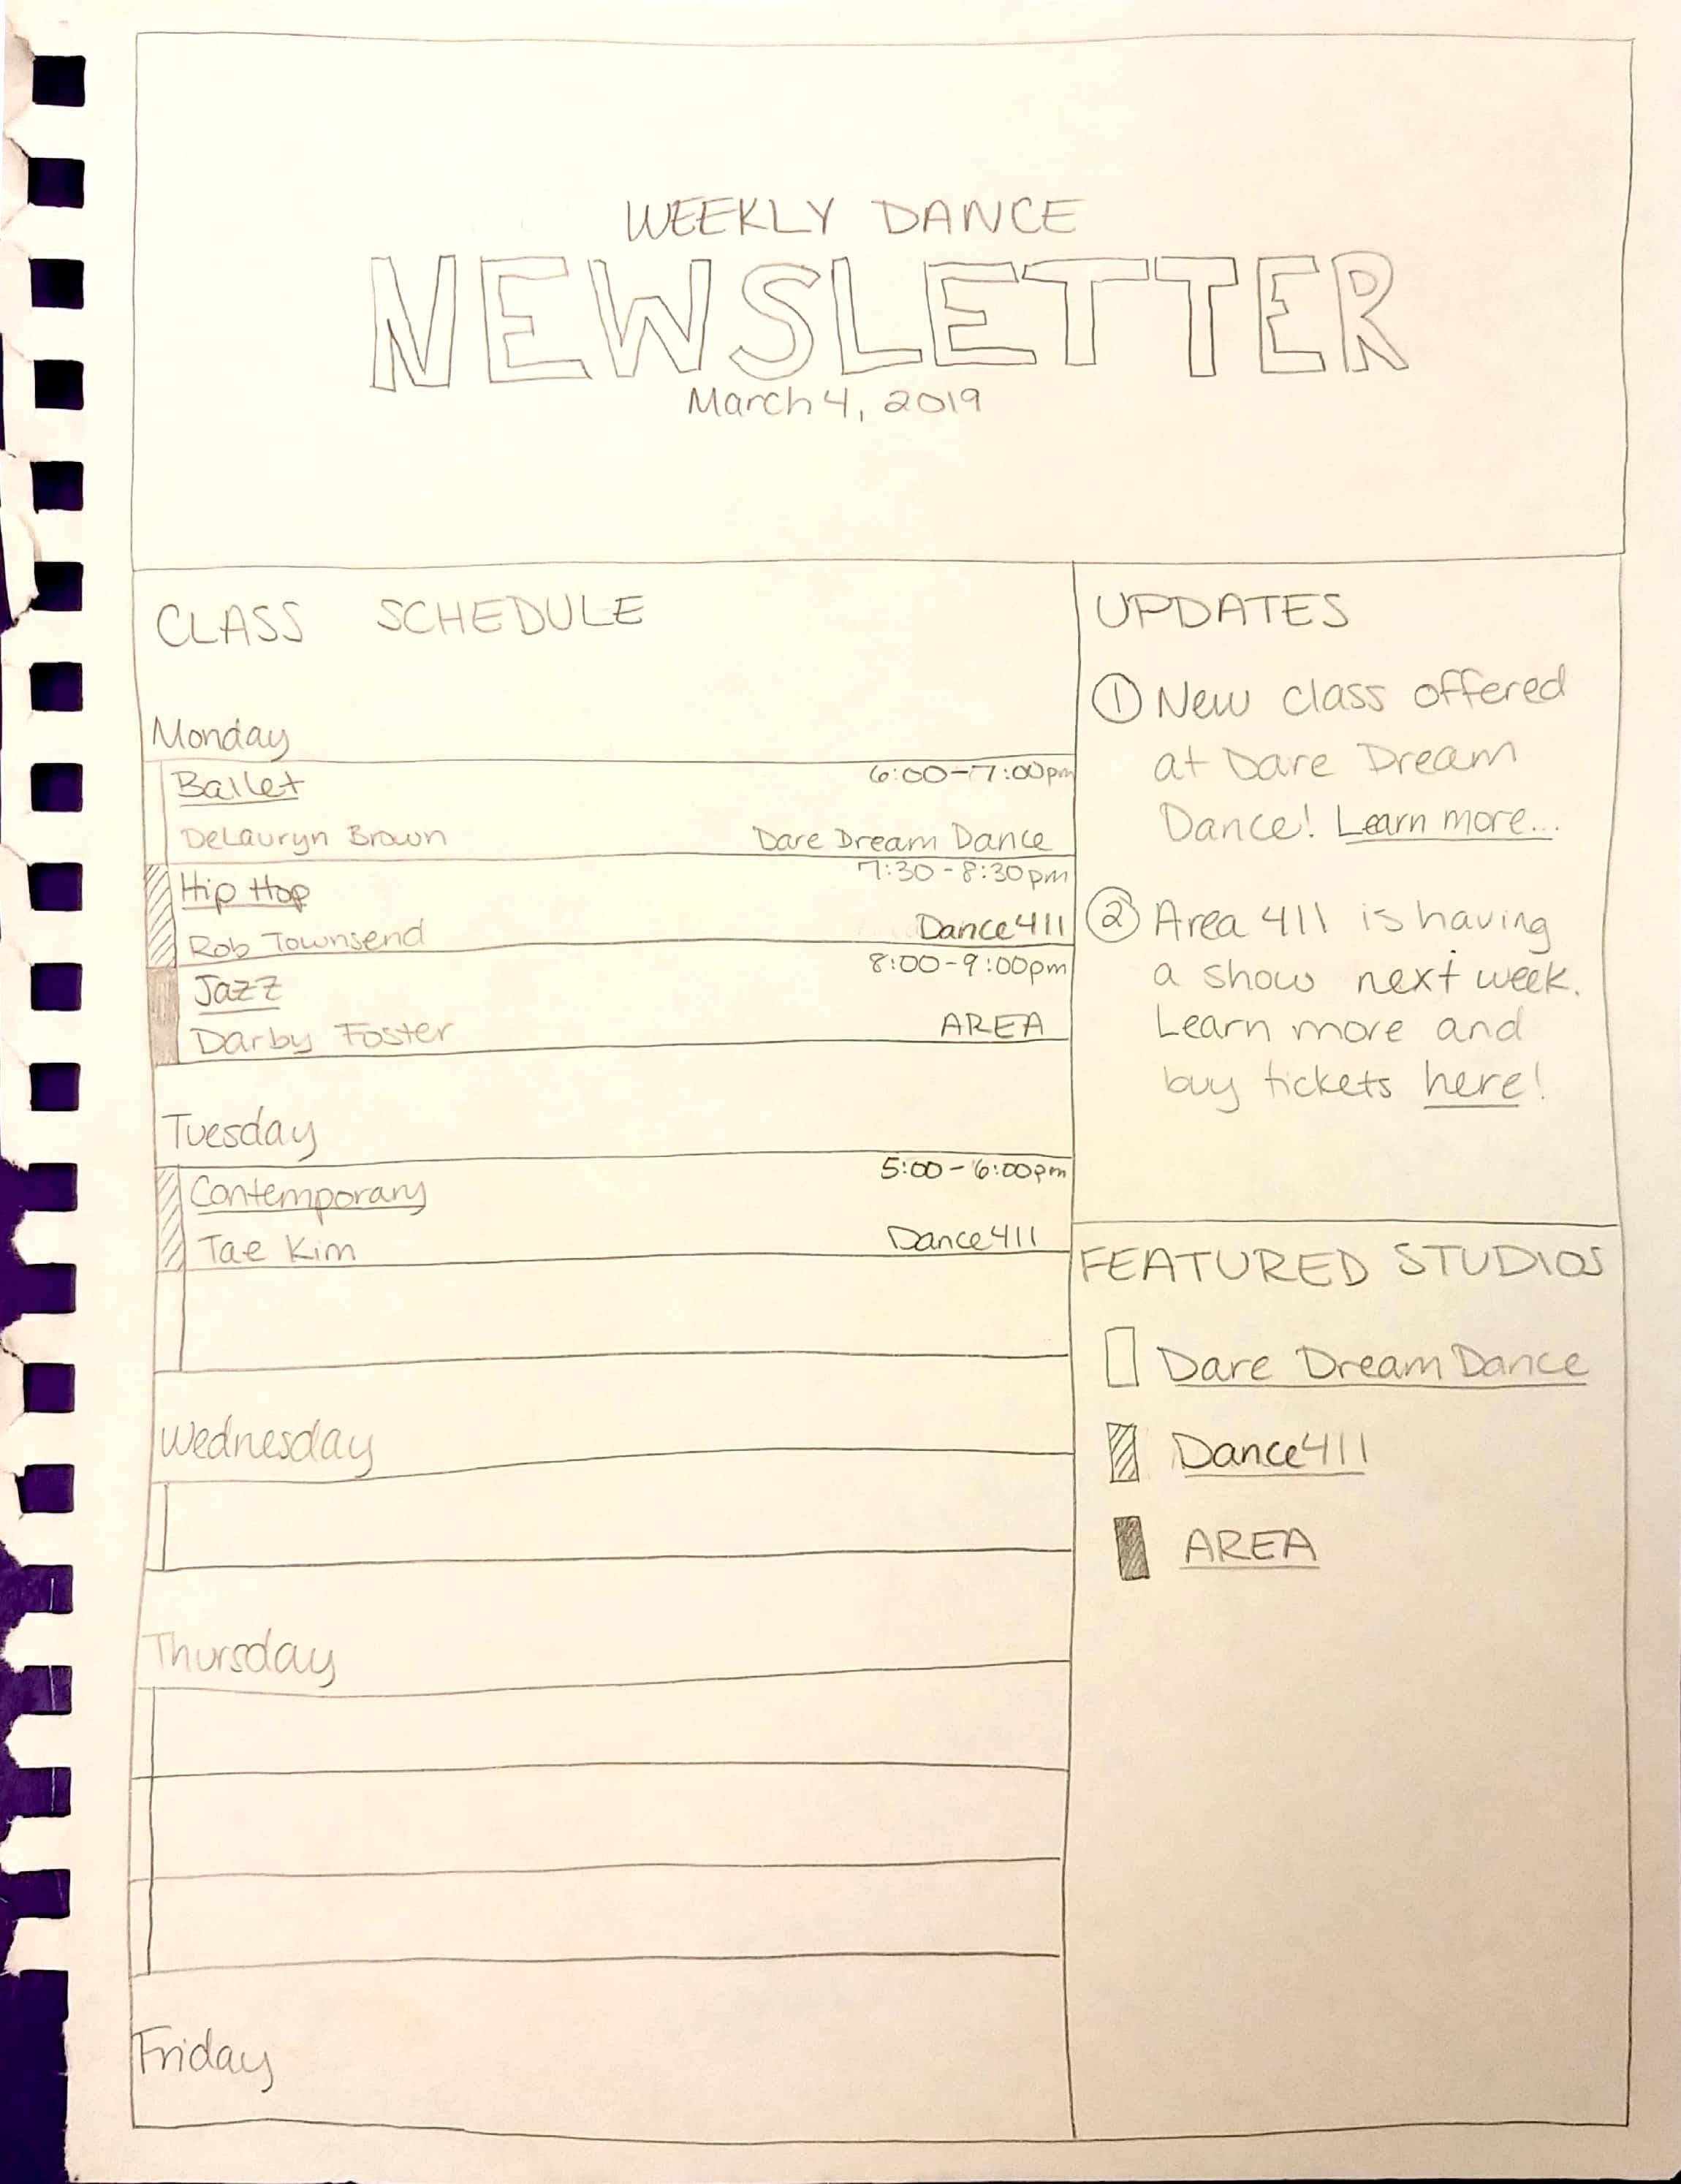 WEEKLY DANCE
NEWSLETTER
March 4, 2019
CLASS SCHEDULE
Monday
Ballet 6:00-7:00pm
DeLauryn Brown Dare Dream Dance
Hip Hop 7:30-8:30pm
Rob Townsend Dance411
Jazz 8:00-9:00pm
Darby Foster AREA
Tuesday
Contemporary 5:00-6:00pm
Tae Kim Dance411
Wednesday
Thursday
Friday
UPDATES
① New class offered
at Dare Dream
Dance! Learn more...
② Area 411 is having
a show next week.
Learn more and
buy tickets here!
FEATURED STUDIOS
Dare Dream Dance
Dance411
AREA